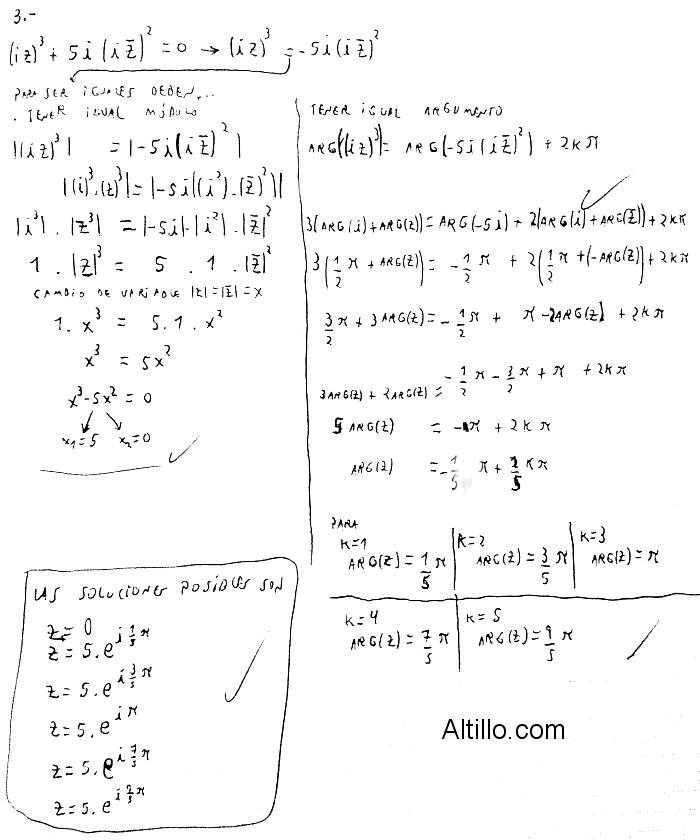 3.-
(iz)³ + 5i (i z̄)² = 0 → (iz)³ = -5i(i z̄)²
PARA SER IGUALES DEBEN...
. TENER IGUAL MÓDULO
|(iz)³| = |-5i(i z̄)²|
|(i)³.(z)³| = |-5i((i²).(z̄)²)|
|i³| . |z³| = |-5i|.|i²| . |z̄|²
1 . |z|³ = 5 . 1 . |z̄|²
CAMBIO DE VARIABLE |z|=|z̄|=x
1. x³ = 5.1. x²
x³ = 5x²
x³-5x² = 0
x₁=5 x₂=0
TENER IGUAL ARGUMENTO
ARG((iz)³) = ARG(-5i(i z̄)²) + 2kπ
3(ARG(i)+ARG(z)) = ARG(-5i) + 2(ARG(i)+ARG(z̄)) + 2kπ
3(1/2 π + ARG(z)) = -1/2 π + 2(1/2 π + (-ARG(z)) + 2kπ
3/2 π + 3ARG(z) = -1/2 π + π - 2ARG(z) + 2kπ
3ARG(z) + 2ARG(z) = -1/2 π - 3/2 π + π + 2kπ
5 ARG(z) = -π + 2kπ
ARG(z) = -1/5 π + 2/5 kπ
PARA
k=1 k=2 k=3
ARG(z) = 1/5 π ARG(z) = 3/5 π ARG(z) = π
k=4 k=5
ARG(z) = 7/5 π ARG(z) = 9/5 π
LAS SOLUCIONES POSIBLES SON
z = 0
z = 5.e^(i 1/5 π)
z = 5.e^(i 3/5 π)
z = 5.e^(iπ)
z = 5.e^(i 7/5 π)
z = 5.e^(i 2/5 π)
Altillo.com